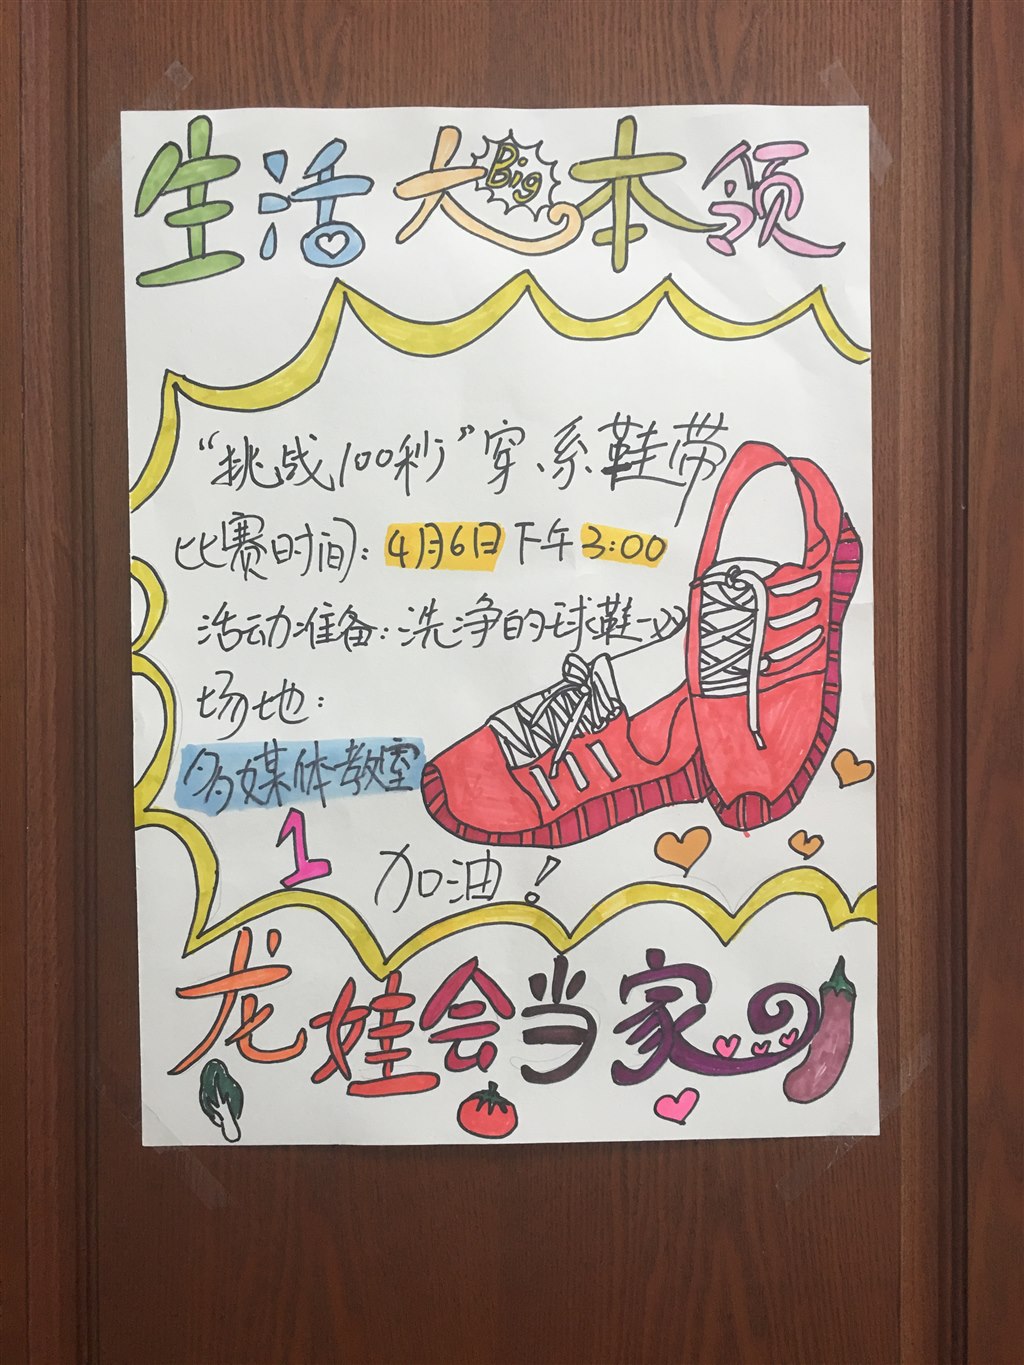 生活大Big本领
“挑战100秒”穿、系鞋带
比赛时间：4月6日下午3:00
活动准备：洗净的球鞋一双
场地：
多媒体教室
1
加油！
龙娃会当家